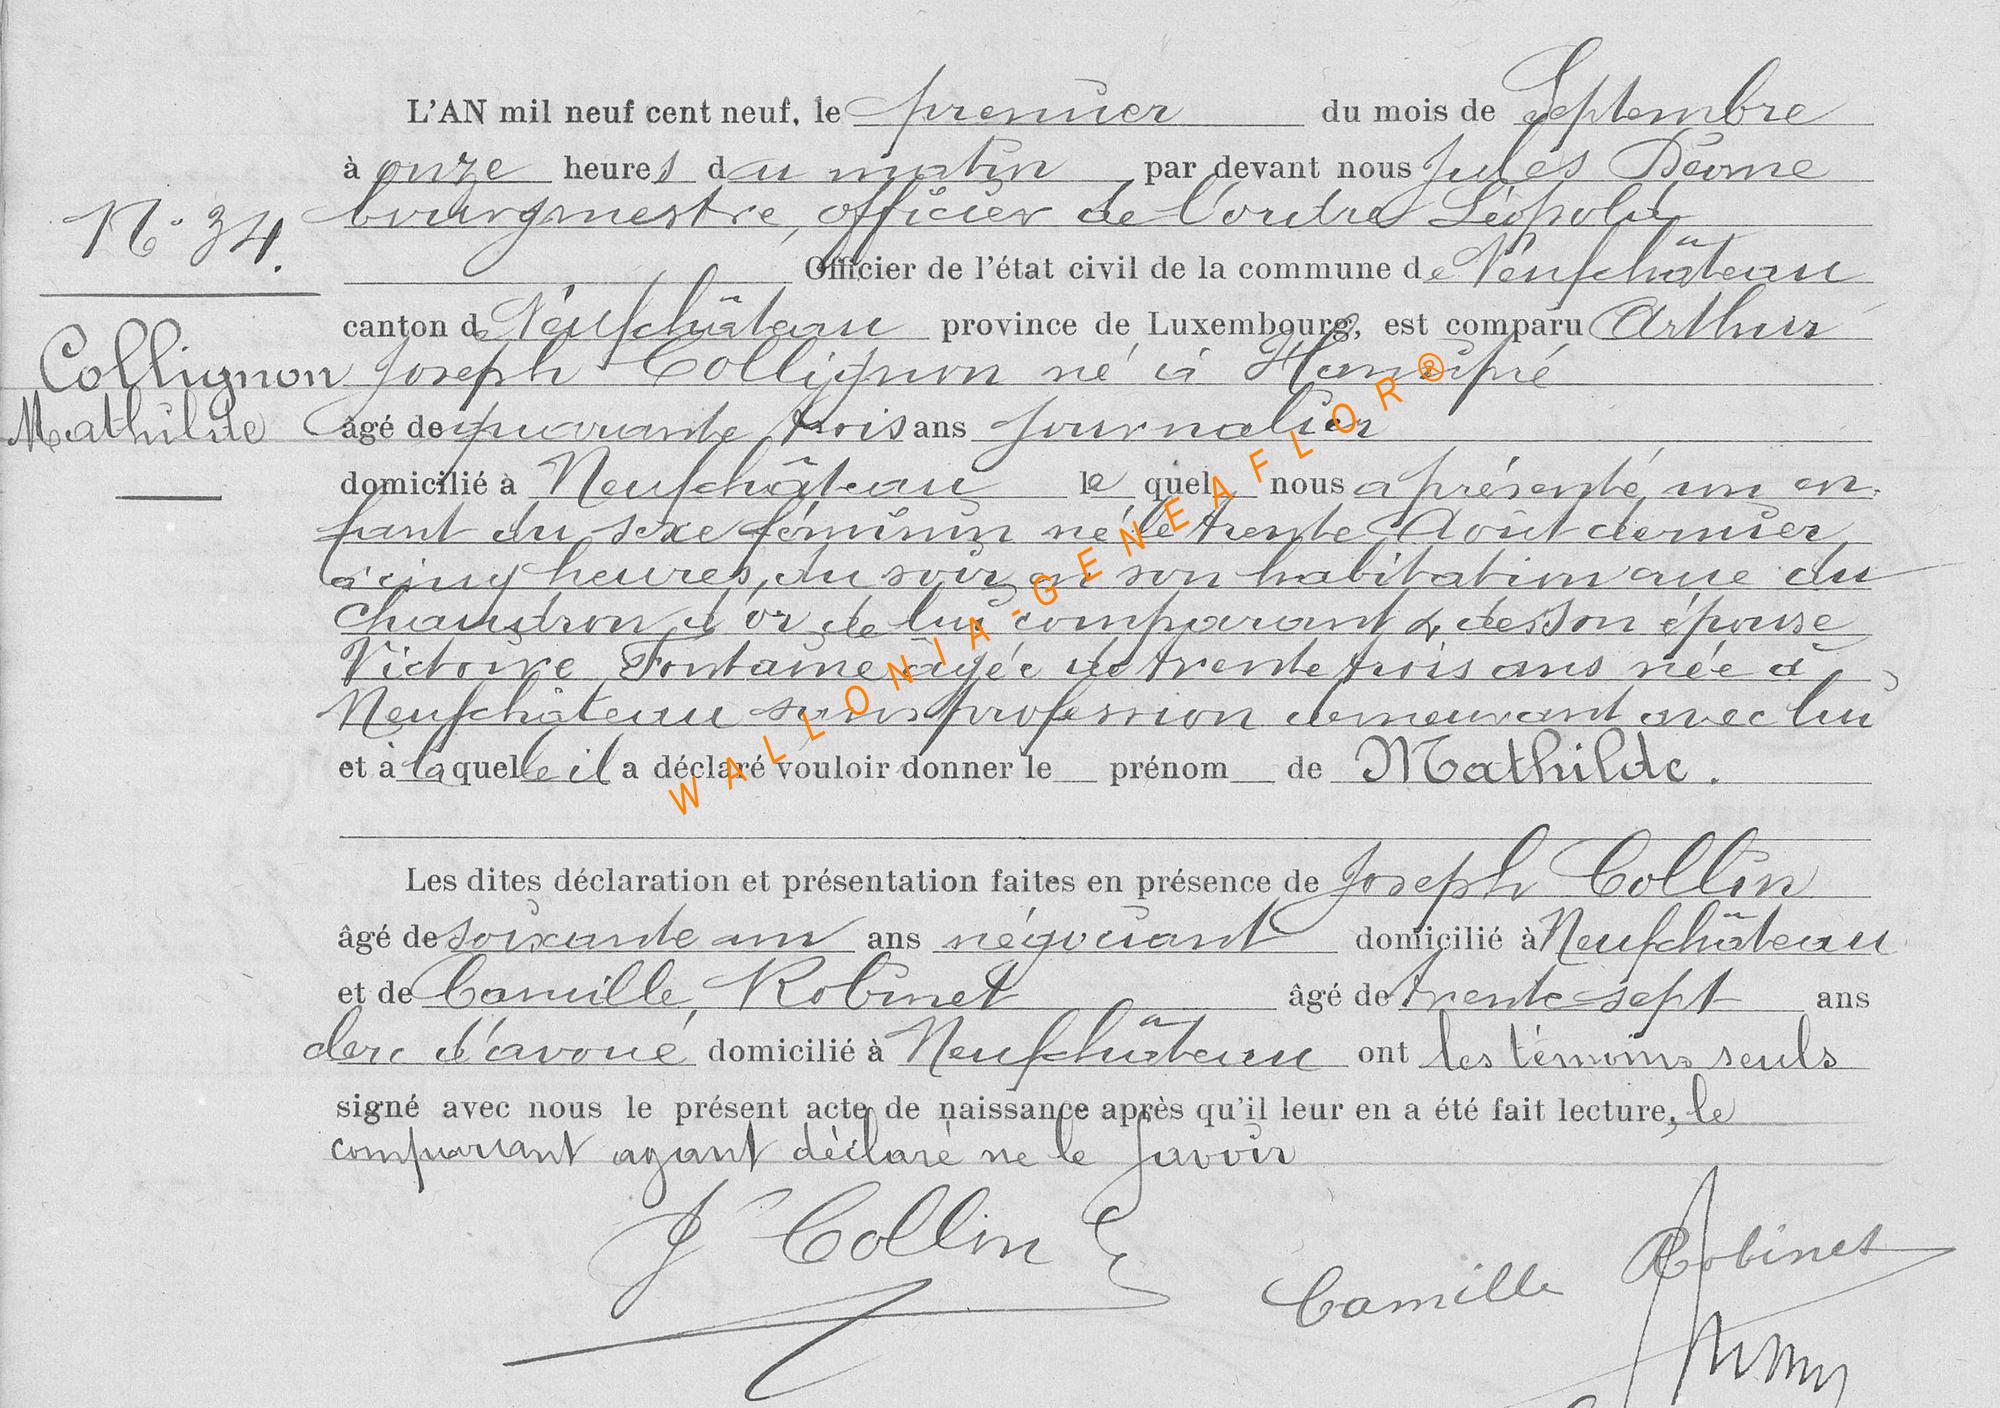 L'AN mil neuf cent neuf, le premier du mois de Septembre
à onze heures du matin par devant nous Jules
bourgmestre, officier de l'ordre Léopold
N° 34.
Officier de l'état civil de la commune de Neufchâteau
canton de Neufchâteau province de Luxembourg, est comparu Arthur
Collignon Joseph Collignon né à
Mathilde âgé de quarante trois ans journalier
domicilié à Neufchâteau le quel nous a présenté un en-
fant du sexe féminin né le trente Août dernier
à cinq heures du soir en son habitation rue du
chaudron d'or de lui comparant & de son épouse
Victoire Fontaine âgée de trente trois ans née à
Neufchâteau sans profession demeurant avec lui
et à laquelle il a déclaré vouloir donner le prénom de Mathilde.
Les dites déclaration et présentation faites en présence de Joseph Collin
âgé de soixante un ans négociant domicilié à Neufchâteau
et de Camille Robinet âgé de trente-sept ans
clerc d'avoué domicilié à Neufchâteau ont les témoins seuls
signé avec nous le présent acte de naissance après qu'il leur en a été fait lecture, le
comparant ayant déclaré ne le savoir
Jh Collin
Camille Robinet
WALLONIA-GENEAFLOR®